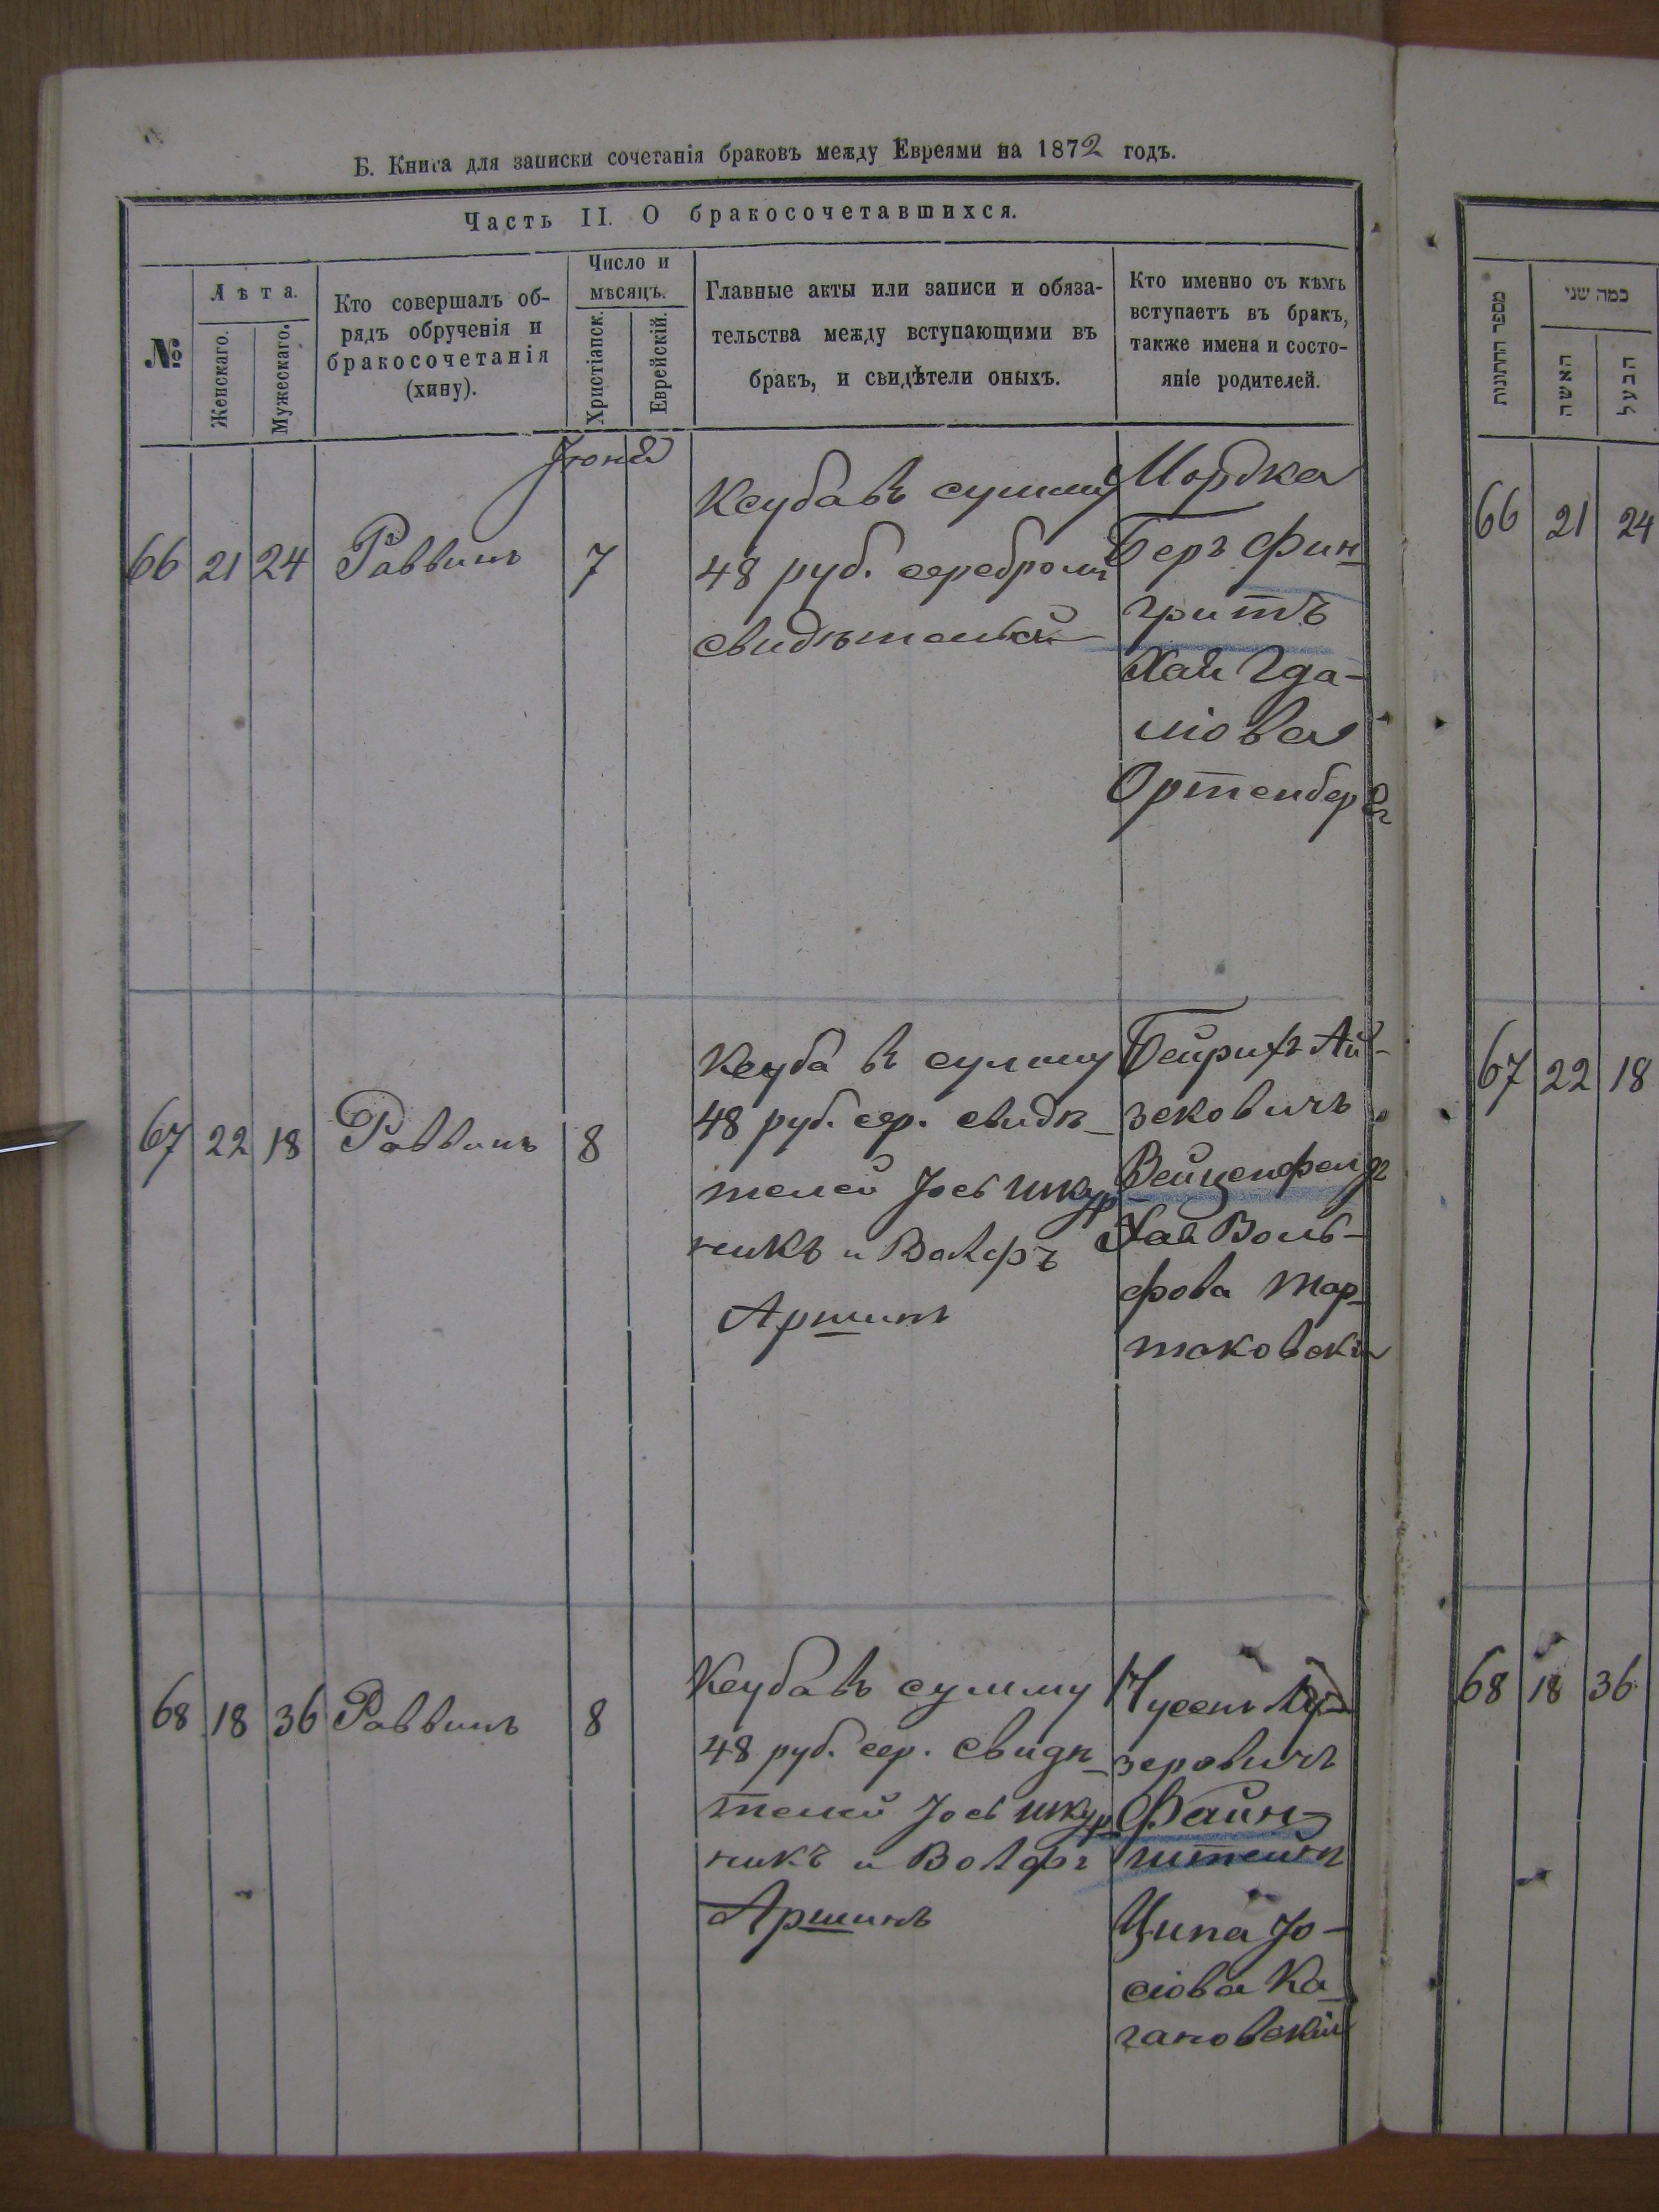 Б. Книга для записки сочетанія браковъ между Евреями на 1872 годъ.
Часть II. О бракосочетавшихся.
№
Лѣта.
Женскаго.
Мужескаго.
Кто совершалъ об-
рядъ обрученія и
бракосочетанія
(хину).
Число и
мѣсяцъ.
Христіанск.
Еврейскій.
Главные акты или записи и обяза-
тельства между вступающими въ
бракъ, и свидѣтели оныхъ.
Кто именно съ кѣмъ
вступаетъ въ бракъ,
также имена и состо-
яніе родителей.
Іюня
66 21 24 Раввинъ 7
Ксуба въ сумму
48 руб. серебромъ
свидѣтелей
Мордка
Беръ Фин-
гритъ
Хая Гда-
ліова
Ортенбергъ
67 22 18 Раввинъ 8
Ксуба въ сумму
48 руб. сер. свидѣ-
телей Іось Шкур
никъ и Волфъ
Аршинъ
Бейрихъ Ай-
зековичъ
Вейценфелдъ
Хая Воль-
фова Тар-
таковскія
68 18 36 Раввинъ 8
Ксуба въ сумму
48 руб. сер. свидѣ-
телей Іось Шкур
никъ и Волфъ
Аршинъ
Нусенъ
зеровичъ
Файн-
штейнъ
Ципа Іо-
сіова Ка-
гановскія
מספר החתונות
כמה שני
האשה
הבעל
66 21 24
67 22 18
68 18 36